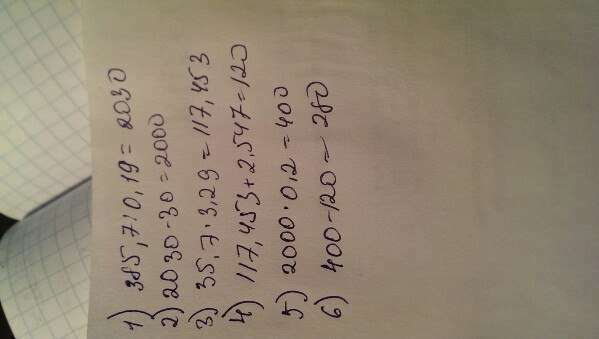 1) 385,7:0,19=2030
2) 2030-30=2000
3) 35,7·3,29=117,453
4) 117,453+2,547=120
5) 2000·0,2=400
6) 400-120=280